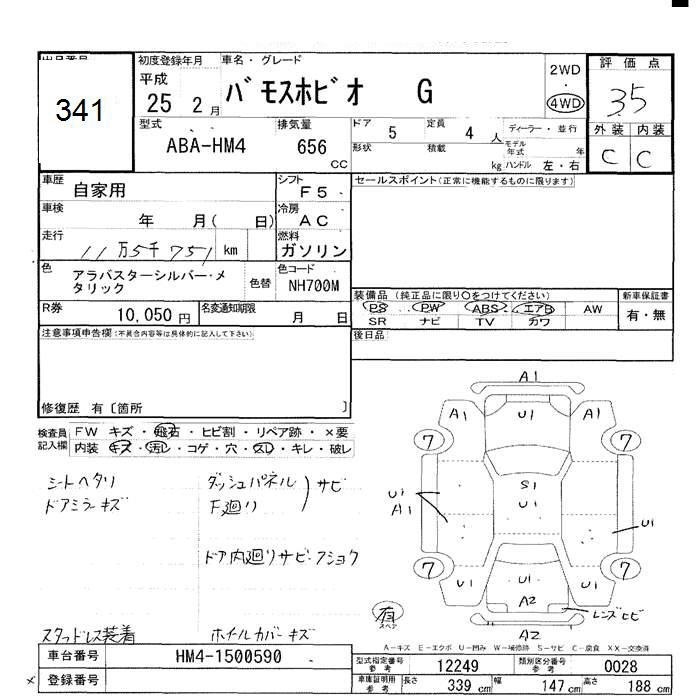 出品番号
341
初度登録年月
平成
25 2月
車名・グレード
バモスホビオ G
2WD
・
4WD
評価点
3.5
外装 内装
C C
型式
ABA-HM4
排気量
656
CC
ドア 5 定員 4人
形状 積載 kg
ディーラー・並行
モデル年式 年
ハンドル 左・右
車歴 自家用
シフト F5
セールスポイント(正常に機能するものに限ります)
車検 年 月( 日)
冷房 AC
走行 11万5千751 km
燃料 ガソリン
色 アラバスターシルバー・メタリック
色替
色コード NH700M
装備品 (純正品に限り○をつけてください)
PS PW ABS エアB AW
SR ナビ TV カワ
新車保証書
有・無
R券 10,050円
名変通知期限 月 日
後日品
注意事項申告欄(不具合内容等は具体的に記入して下さい)
修復歴 有〔箇所 〕
検査員記入欄
FW キズ・飛石・ヒビ割・リペア跡・×要
内装 キズ・汚レ・コゲ・穴・スレ・キレ・破レ
シートヘタリ
ドアミラーキズ
ダッシュパネル
F廻り
サビ
ドア内廻りサビ・フショク
スタッドレス装着
ホイルカバーキズ
A1
A1 U1 A1
7 7
U1
A1
S1
U1
U1
7 7
U1 U1 U1
A2
レンズヒビ
A2
有
スペア
A-キズ E-エクボ U-凹み W-補修跡 S-サビ C-腐食 XX-交換済
車台番号 HM4-1500590
× 登録番号
型式指定番号参考 12249
類別区分番号参考 0028
車庫証明用参考 長さ 339 cm 幅 147 cm 高さ 188 cm